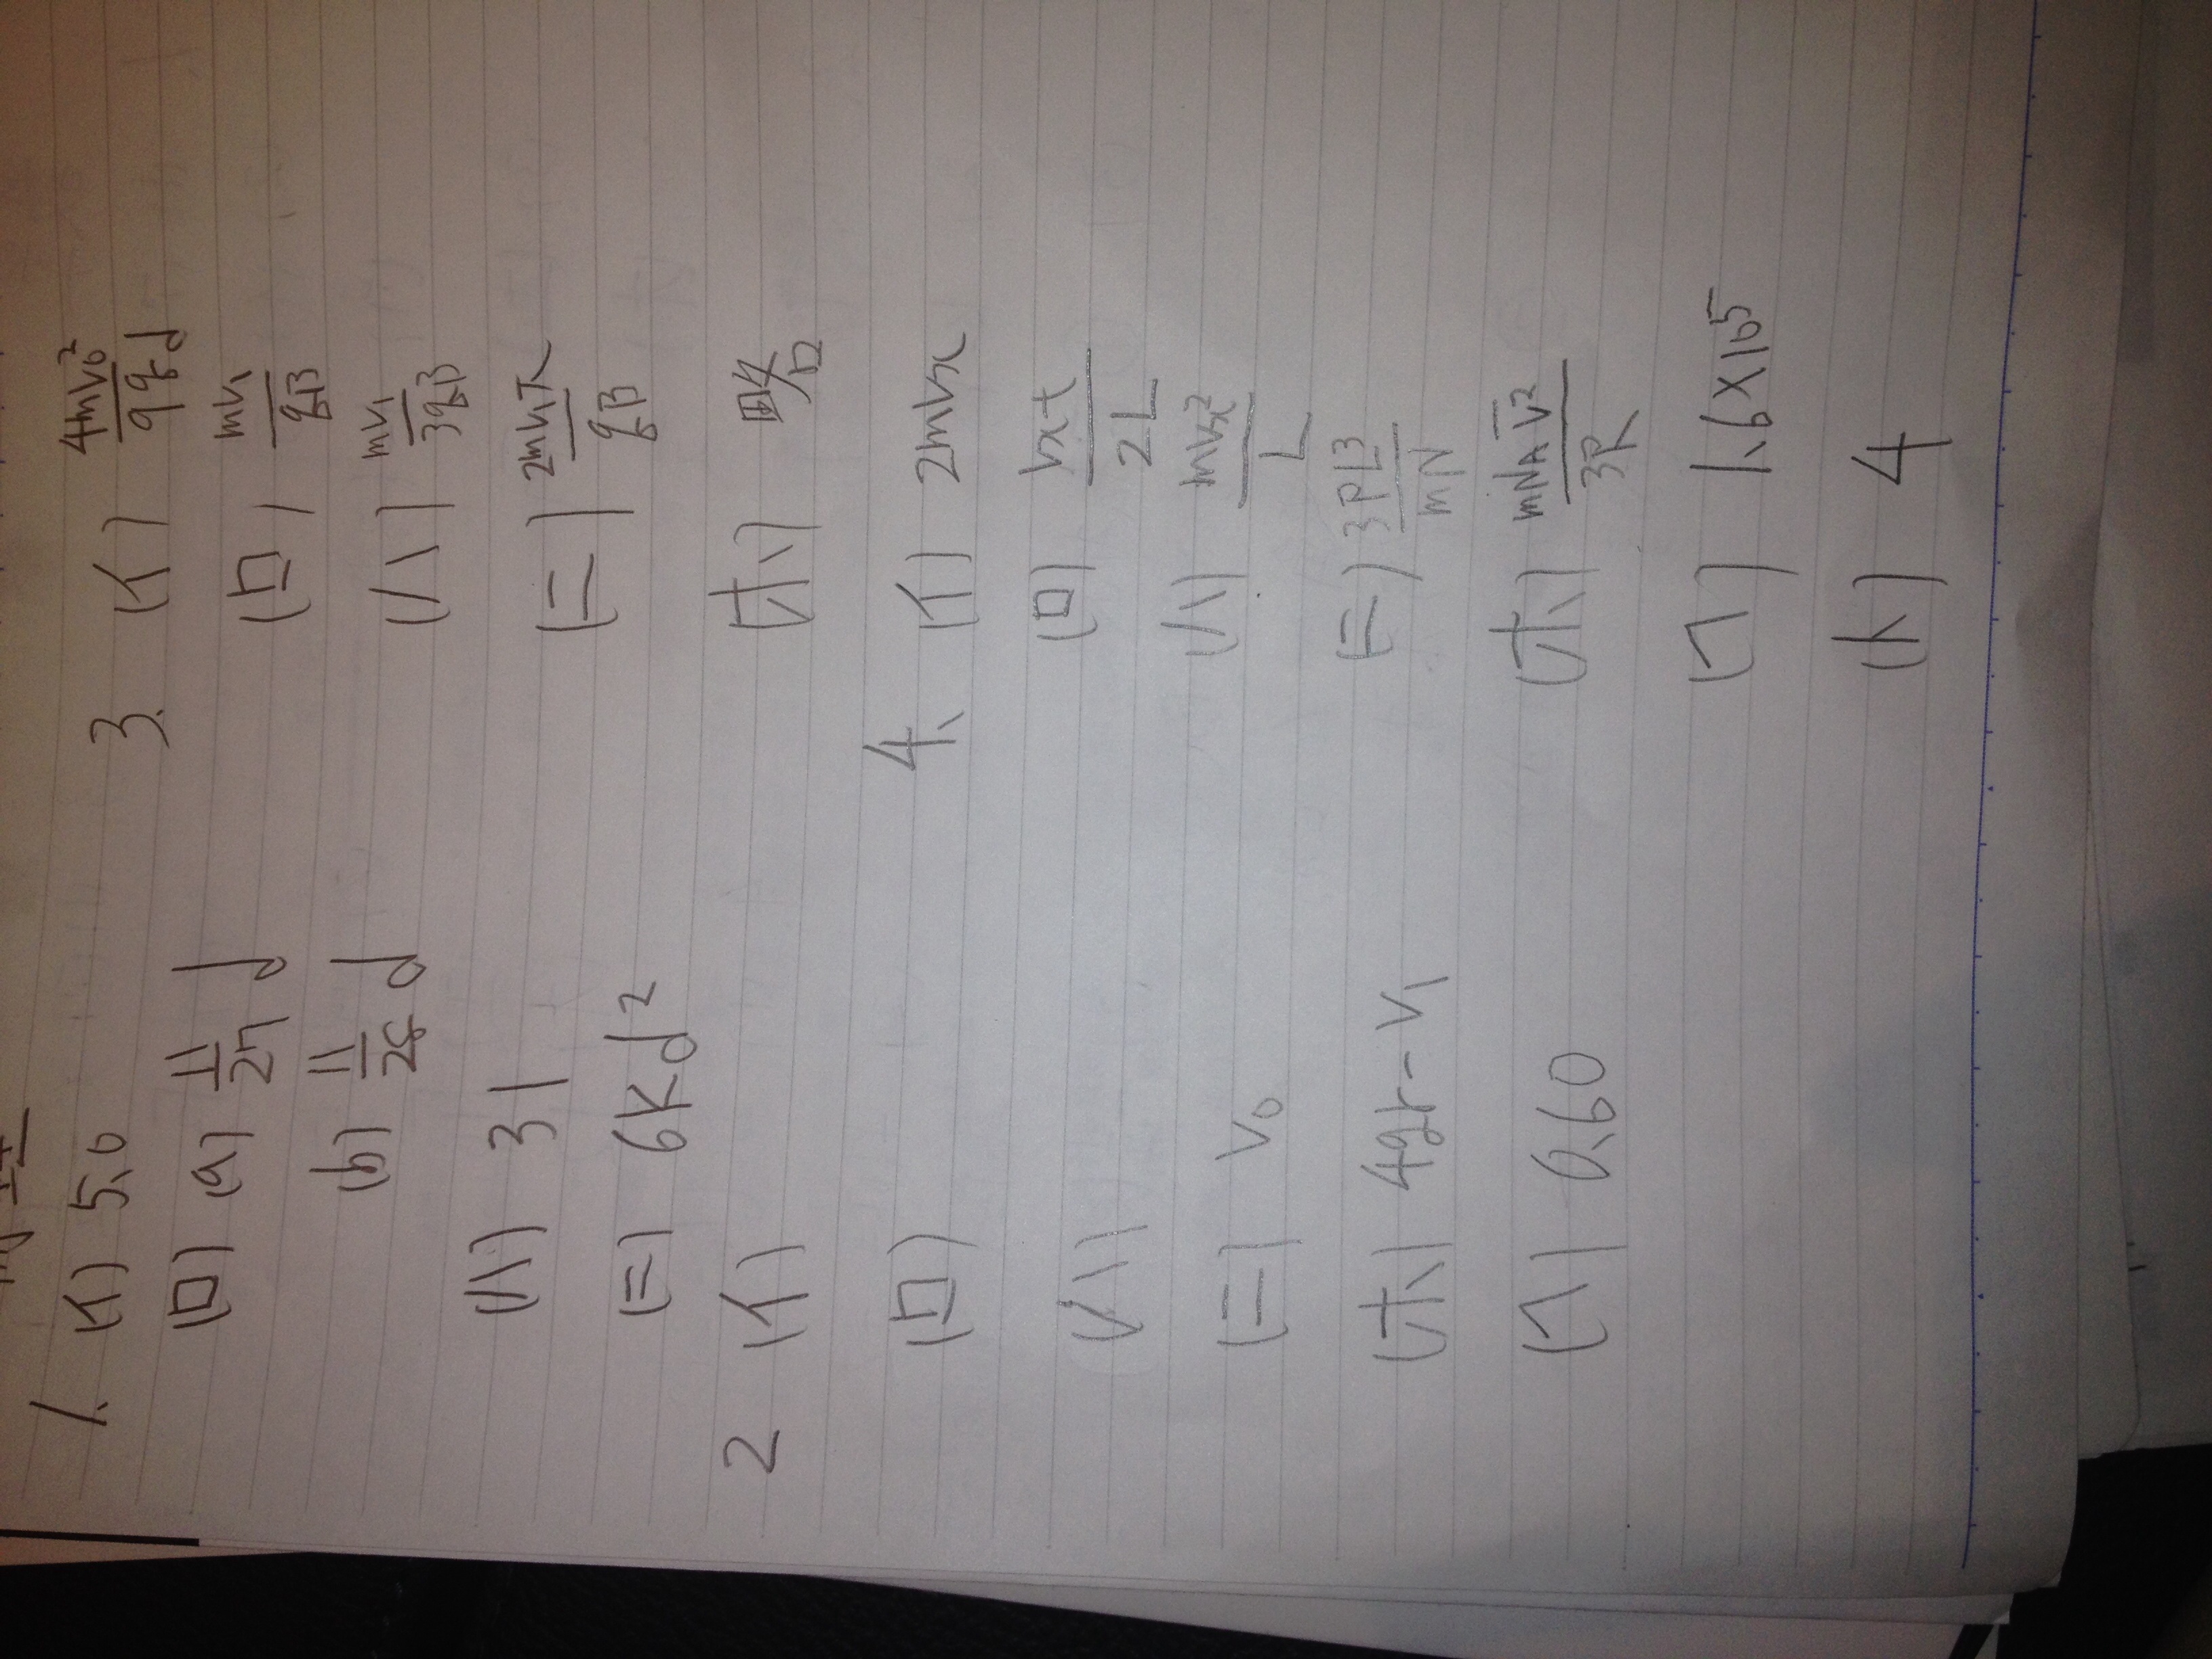 1. (イ) 5.0
(ロ) (a) 11/27 d
(b) 11/28 d
(ハ) 31
(ニ) 6kd²
2 (イ)
(ロ)
(ハ)
(ニ) v₀
(ホ) 4gr-v₁
(ヘ) 0.60
3. (イ) 4mv₀²/9qd
(ロ) mv₁/qB
(ハ) mv₁/3qB
(ニ) 2mv₁π/qB
(ホ) 略
4. (イ) 2mvx
(ロ) vxt/2L
(ハ) mvx²/L
(ニ) 3PL³/mN
(ホ) mNA v̅²/3R
(ヘ) 1.6×10⁵
(ト) 4